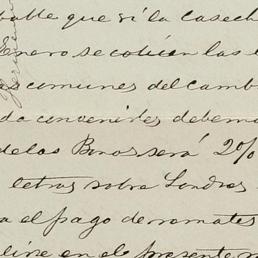 que si la cosech
Enero se coticen las l
as comunes del camb
da convenirles debemo
de los Bonos será 2%
letras sobre Londres
a el pago de remates
en el presente